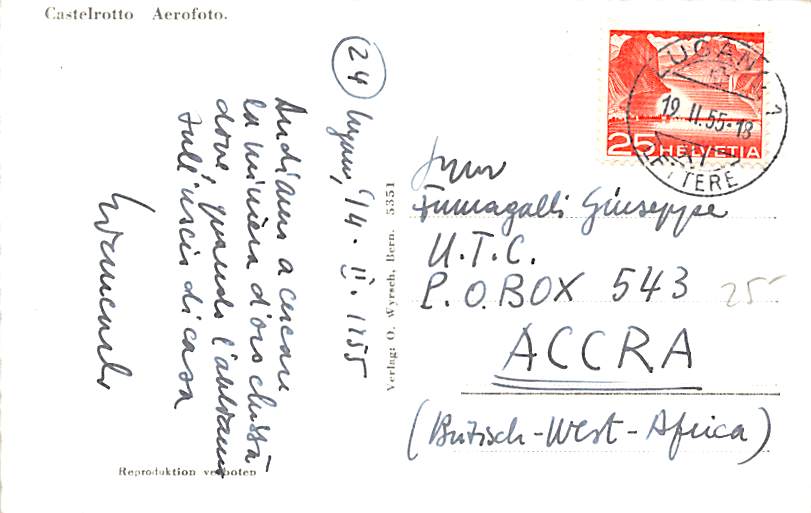 Castelrotto Aerofoto.
24
14. II. 1955
Andiamo a cercare
la miniera d'oro chissà
dove, quando l'abbiamo
sull'uscio di casa
Verlag: O. Wyrsch, Bern. 5351
Reproduktion verboten
LUGANO 1
19. II. 55-18
LETTERE
25 HELVETIA
Fumagalli Giuseppe
U.T.C.
P.O. BOX 543
25
ACCRA
(British-West-Africa)